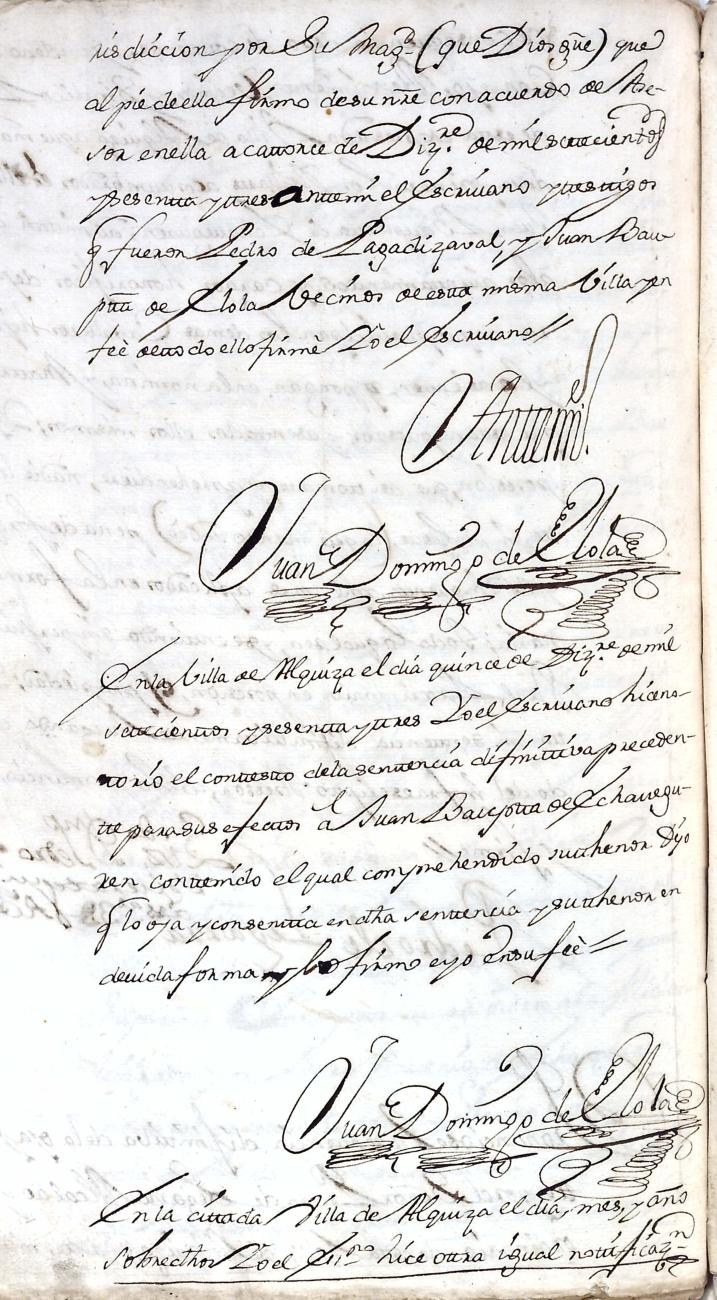 risdiccion por Su Mag.d (que Dios g̃ue) que
al pie de ella firmo de su nr̃e con acuerdo de Ase-
sor en ella a cattorce de Diz.re de mil settecienttos
y sesentta y ttres antte mi el Escriuano y testtigos
q̃ fueron Pedro de Lagadizaval, y Juan Bau-
ptta de Elola Vecinos de estta misma Villa y en
feè de ttodo ello firmè Yo el Escriuano //
Antte mi
Juan Domingo de Elola
En la Villa de Alquiza el dia quince de Diz.re de mil
settecienttos y sesentta y ttres Yo el Escriuano hice no-
ttorio el conttestto de la senttencia difinittiva preceden-
tte para sus efecttos à Juan Bauptta de Echauegu-
ren conttenido el qual comprehendido su tthenor Dijo
q̃ lo oya y consenttia en dha senttencia y su tthenor en
deuida forma y lo firmo e yo en su feè //
Juan Domingo de Elola
En la cittada Villa de Alquiza el dia, mes, y año
sobredhos Yo el Ess.no hice ottra igual nottificaz.n